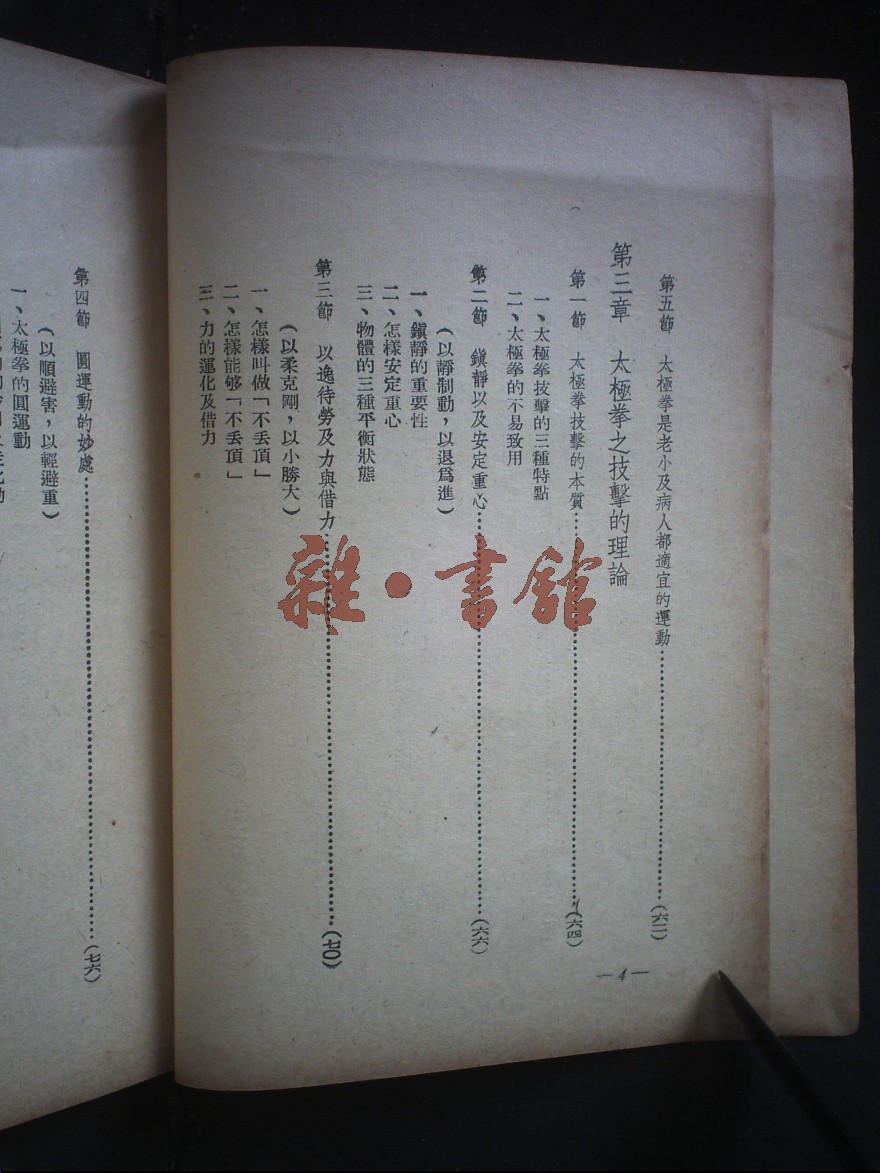 第五節 太極拳是老小及病人都適宜的運動……(六二)
第三章 太極拳之技擊的理論
第一節 太極拳技擊的本質……(六四)
一、太極拳技擊的三種特點
二、太極拳的不易致用
第二節 鎭靜以及安定重心……(六六)
(以靜制動，以退爲進)
一、鎭靜的重要性
二、怎樣安定重心
三、物體的三種平衡狀態
第三節 以逸待勞及力與借力……(七〇)
(以柔克剛，以小勝大)
一、怎樣叫做「不丢頂」
二、怎樣能够「不丢頂」
三、力的運化及借力
—4—
第四節 圓運動的妙處……(七六)
(以順避害，以輕避重)
一、太極拳的圓運動
雜·書舘